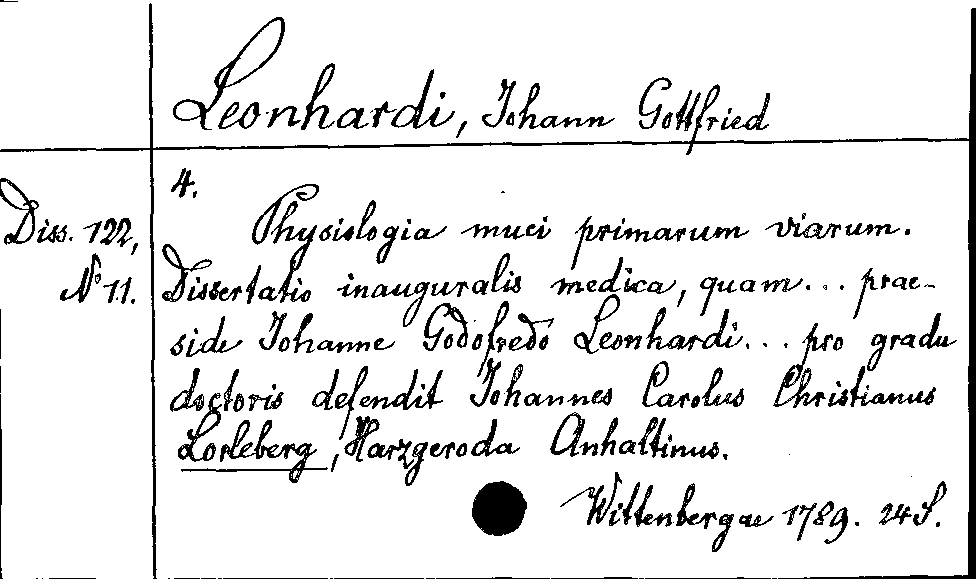 Leonhardi, Johann Gottfried
4.
Diss. 122,
No 11.
Physiologia muci primarum viarum.
Dissertatio inauguralis medica, quam... prae-
side Johanne Godofredo Leonhardi... pro gradu
doctoris defendit Johannes Carolus Christianus
Lorleberg, Harzgeroda Anhaltinus.
Wittenbergae 1789. 24 S.